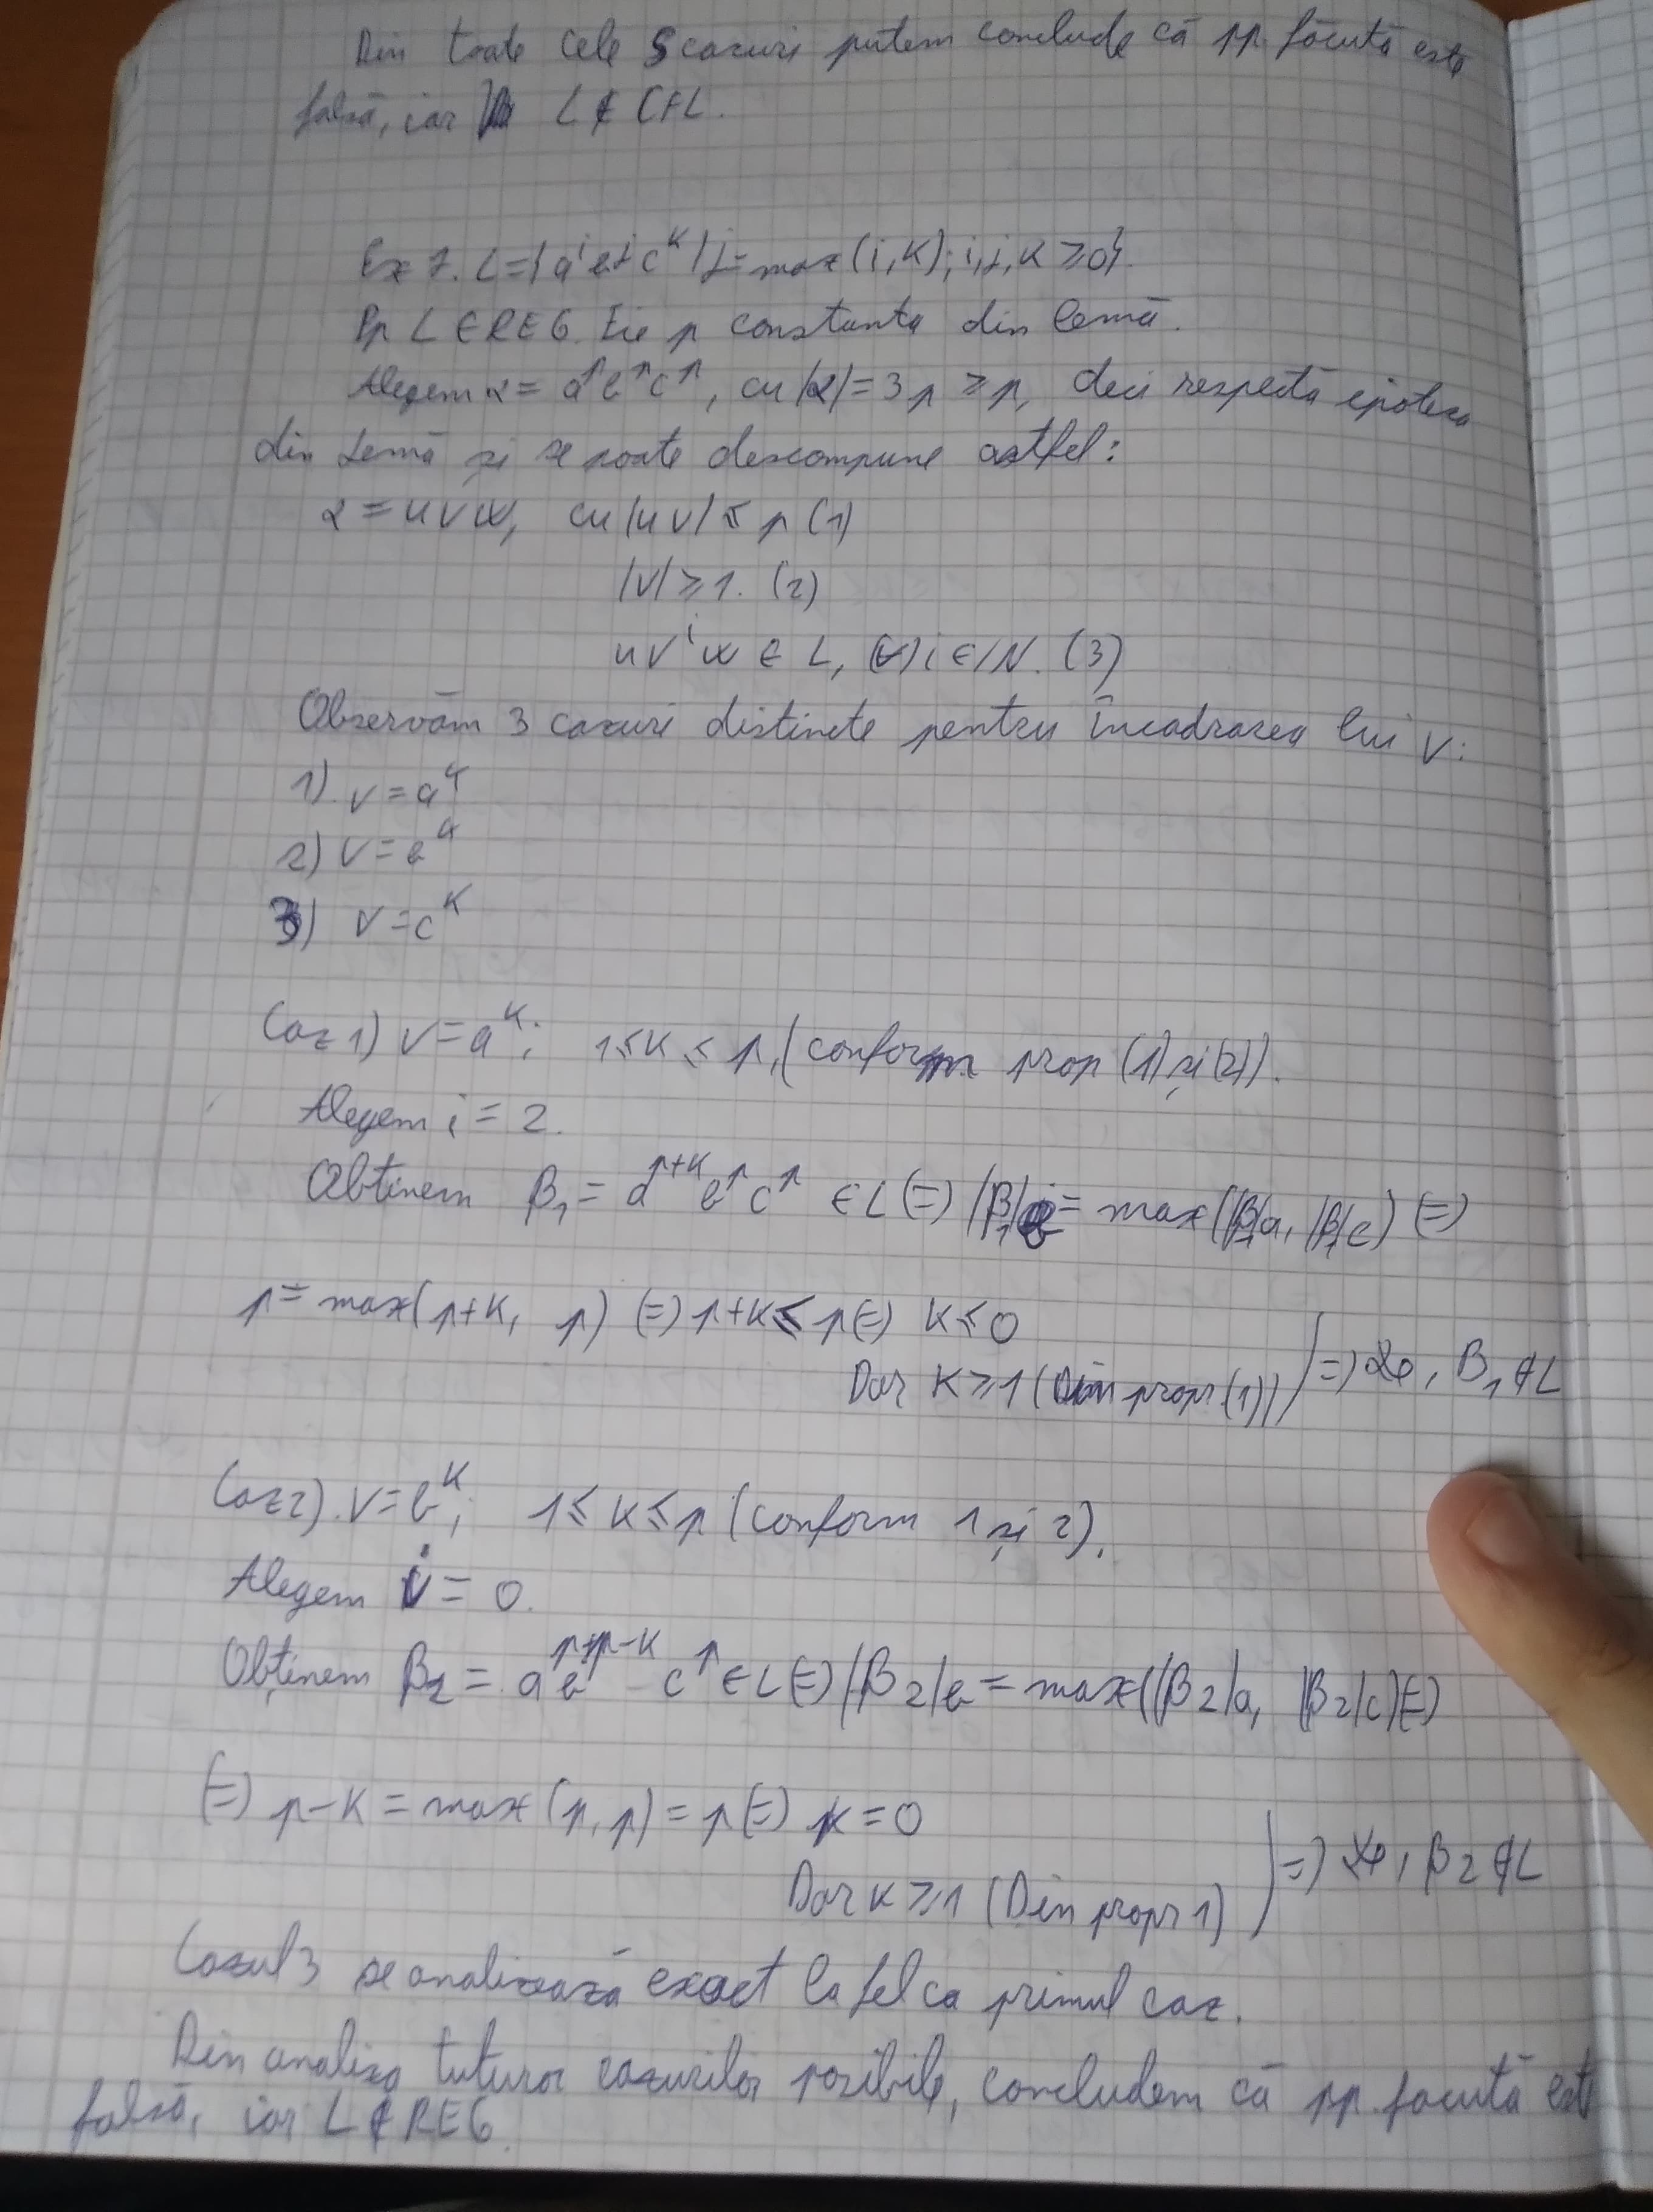 Din toate cele 5 cazuri putem conclude că pp. făcută este
falsă, iar L ∉ CFL.
Ex 7. L={a^i b^j c^k | j=max(i,k); i,j,k ≥0}.
Pp L ∈ REG. Fie p constanta din lemă.
Alegem α = a^p b^p c^p, cu |α|=3p ≥ p, deci respectă ipoteza
din lemă și se poate descompune astfel:
α = uvw, cu |uv| ≤ p (1)
|v| ≥ 1. (2)
uv^i w ∈ L, (∀) i ∈ IN. (3)
Observăm 3 cazuri distincte pentru încadrarea lui v:
1) v = a^k
2) v = b^k
3) v = c^k
Caz 1) v = a^k; 1 ≤ k ≤ p, (conform prop (1) și (2)).
Alegem i = 2.
Obtinem β1 = a^{p+k} b^p c^p ∈ L (=) |β1|b = max(|β1|a, |β1|c) (=)
p = max(p+k, p) (=) p+k ≤ p (=) k ≤ 0
Dar k ≥ 1 (Din propr. (1)) =) , β1 ∉ L
Caz 2). v = b^k; 1 ≤ k ≤ p (conform 1 și 2).
Alegem i = 0.
Obținem β2 = a^p b^{p-k} c^p ∈ L (=) |β2|b = max(|β2|a, |β2|c) (=)
(=) p-k = max(p,p) = p (=) k = 0
Dar k ≥ 1 (Din propr 1) =) , β2 ∉ L
Cazul 3 se analizează exact la fel ca primul caz.
Din analiza tuturor cazurilor posibile, concludem că pp. făcută este
falsă, iar L ∉ REG.